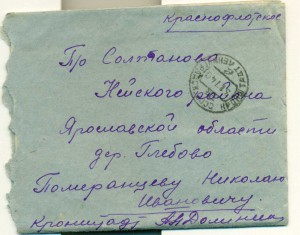 Краснофлотское
П/о Солтаново
Нейского района
Ярославской области
дер. Глебово
Померанцеву Николаю
Ивановичу.
Кронштадт